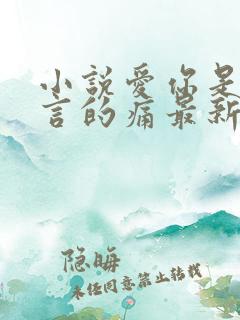 小說愛你是
言的痛最新
隐晦
未经同意禁止转载